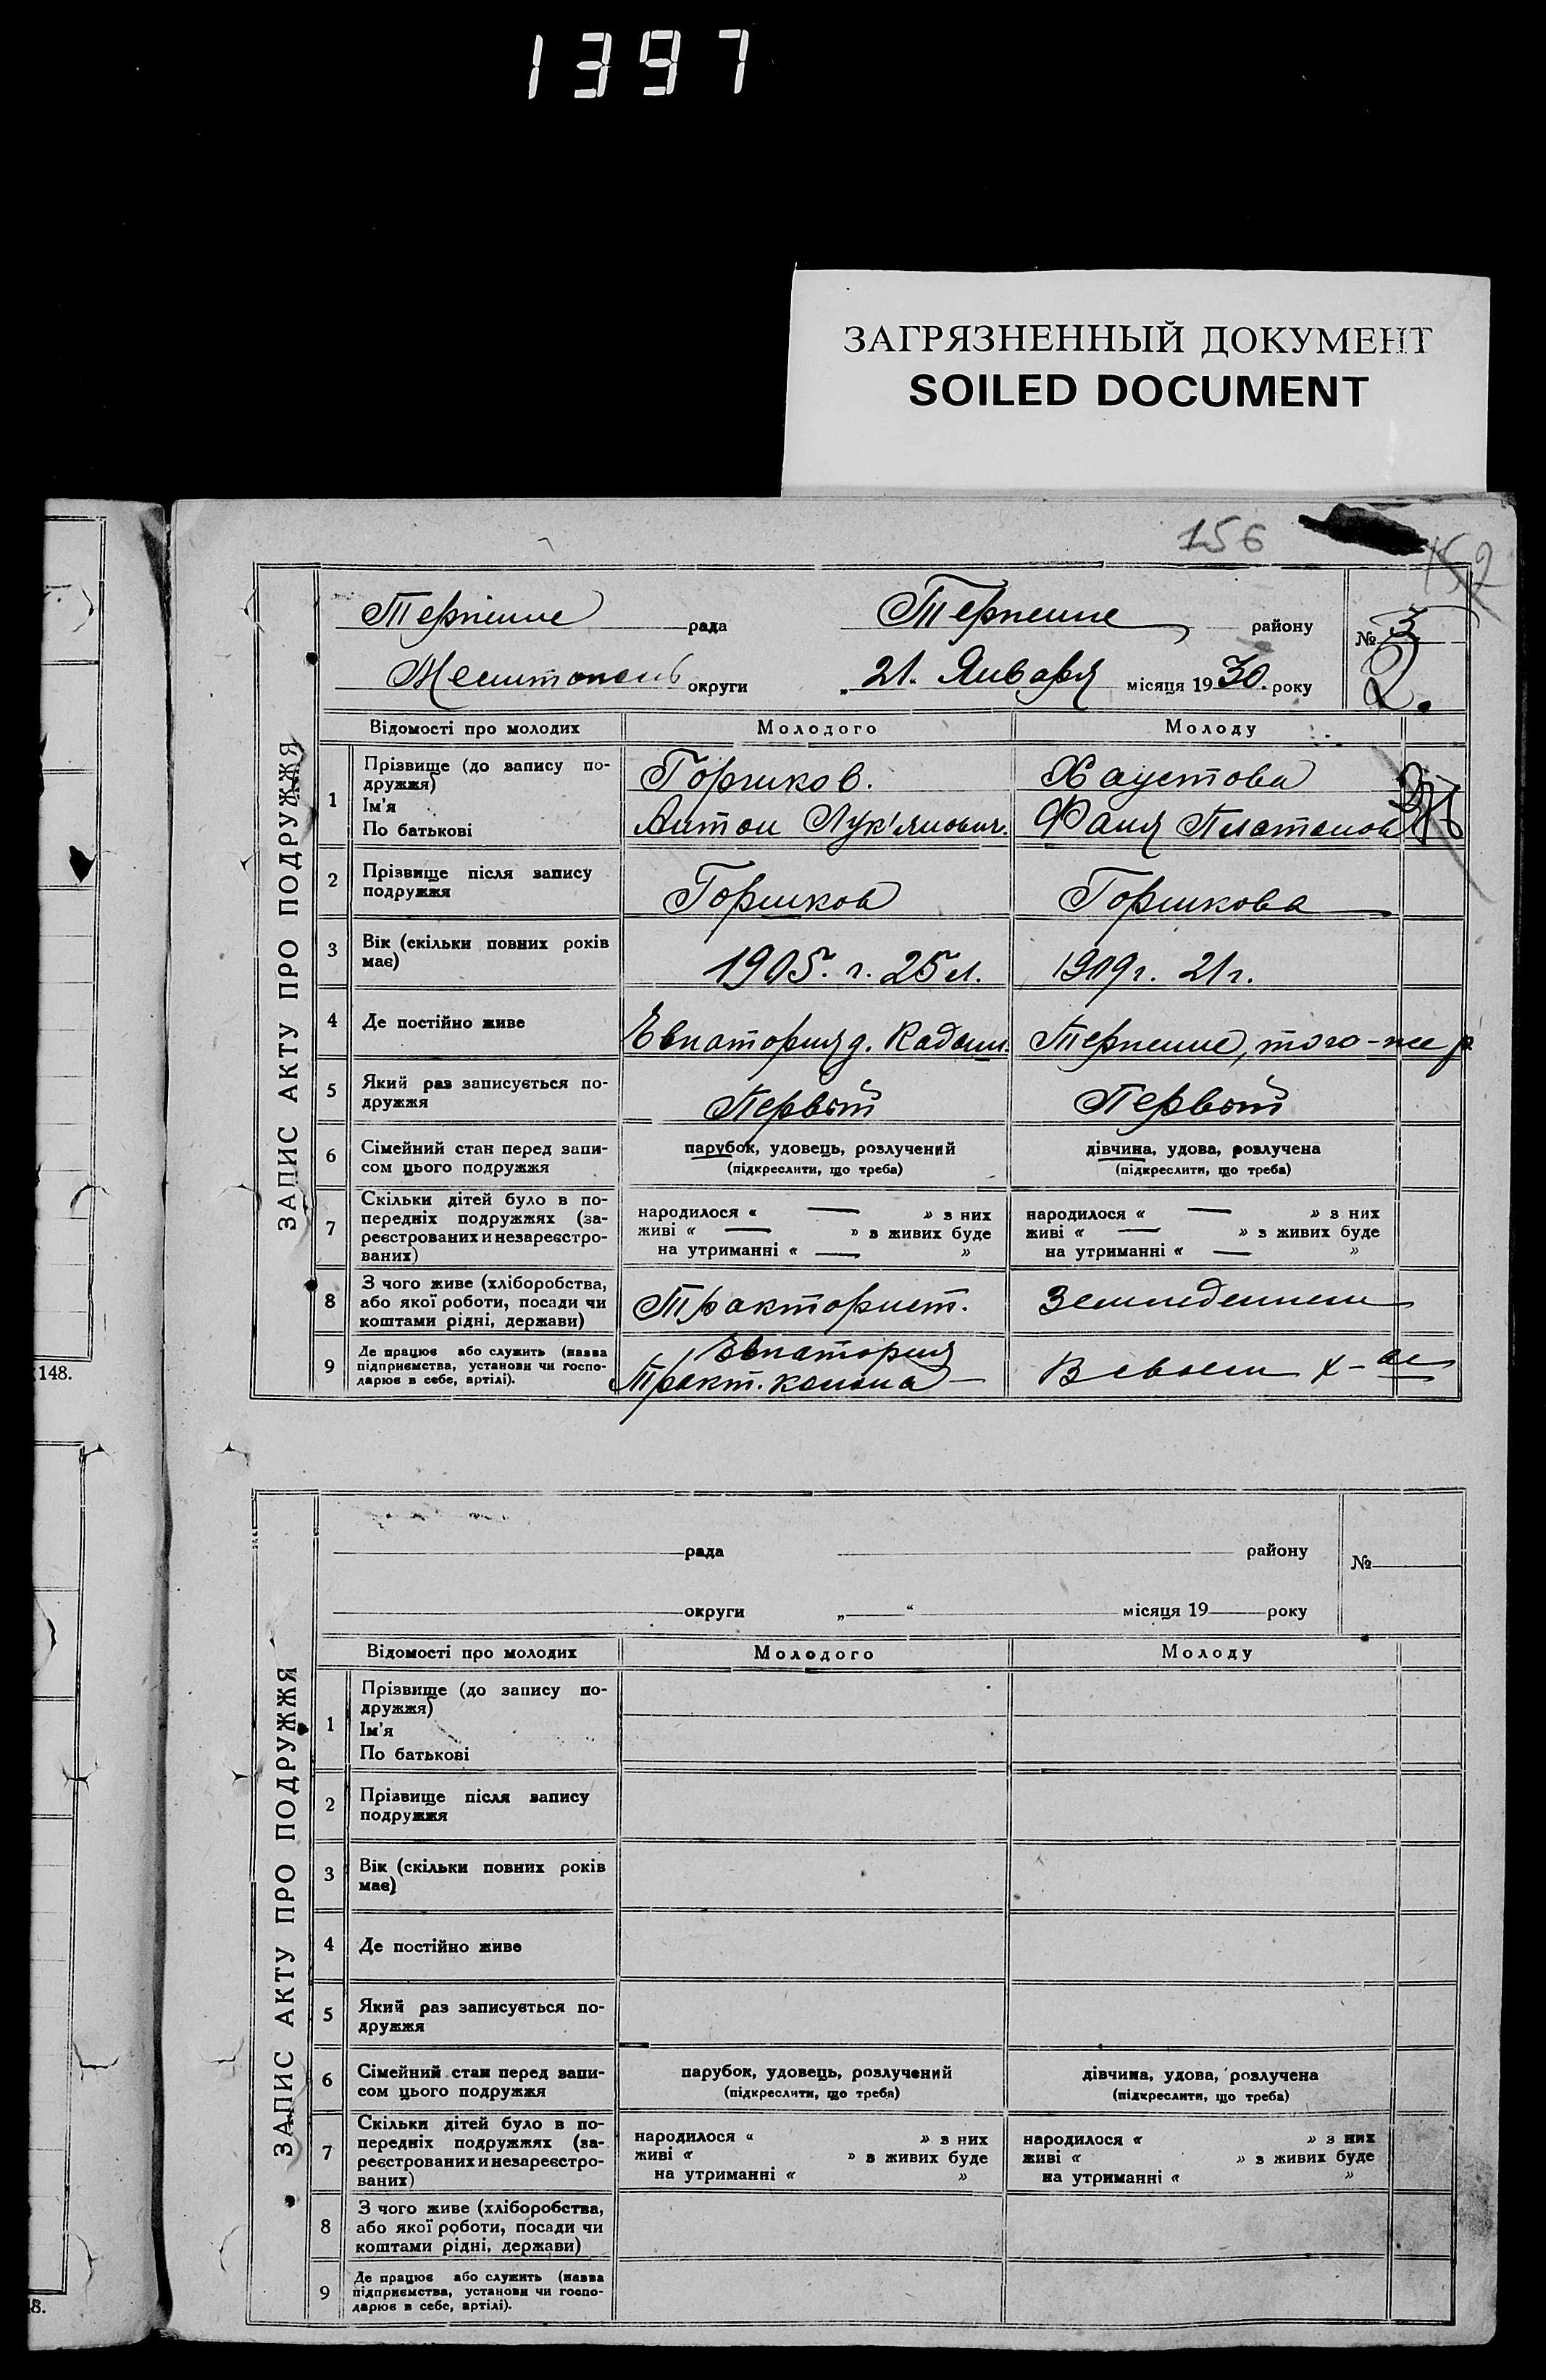 1397
ЗАГРЯЗНЕННЫЙ ДОКУМЕНТ
SOILED DOCUMENT
156
ЗАПИС АКТУ ПРО ПОДРУЖЖЯ
Терпение рада Терпение району № 3
2.
Мелитополь округи „21. Января місяця 1930. року
Відомості про молодих Молодого Молоду
1 Прізвище (до запису по-
дружжя) Горшков. Хаустова
Ім'я
По батькові Антон Лук'янович. Фаня Платонов
2 Прізвище після запису
подружжя Горшков Горшкова
3 Вік (скільки повних років
має) 1905. г. 25 л. 1909 г. 21 г.
4 Де постійно живе Евпатория д. Терпение, того-же р.
5 Який раз записується по-
дружжя Первый Первый
6 Сімейний стан перед запи-
сом цього подружжя
парубок, удовець, розлучений
(підкреслити, що треба)
дівчина, удова, розлучена
(підкреслити, що треба)
7 Скільки дітей було в по-
передніх подружжях (за-
реєстрованих и незареєстро-
ваних)
народилося « — » з них
живі « — » в живих буде
на утриманні « — »
народилося « — » з них
живі « — » з живих буде
на утриманні « — »
8 З чого живе (хліборобства,
або якої роботи, посади чи
коштами рідні, держави)
Тракторист. Земледелием
9 Де працює або служить (назва
підприємства, установи чи госпо-
дарює в себе, артілі).
Евпатория
Тракт. колона — В своем х-ве
148.
ЗАПИС АКТУ ПРО ПОДРУЖЖЯ
рада району №
округи „ “ місяця 19 року
Відомості про молодих Молодого Молоду
1 Прізвище (до запису по-
дружжя)
Ім'я
По батькові
2 Прізвище після запису
подружжя
3 Вік (скільки повних років
має)
4 Де постійно живе
5 Який раз записується по-
дружжя
6 Сімейний стан перед запи-
сом цього подружжя
парубок, удовець, розлучений
(підкреслити, що треба)
дівчина, удова, розлучена
(підкреслити, що треба)
7 Скільки дітей було в по-
передніх подружжях (за-
реєстрованих и незареєстро-
ваних)
народилося « » з них
живі « » в живих буде
на утриманні « »
народилося « » з них
живі « » з живих буде
на утриманні « »
8 З чого живе (хліборобства,
або якої роботи, посади чи
коштами рідні, держави)
9 Де працює або служить (назва
підприємства, установи чи госпо-
дарює в себе, артілі).
8.